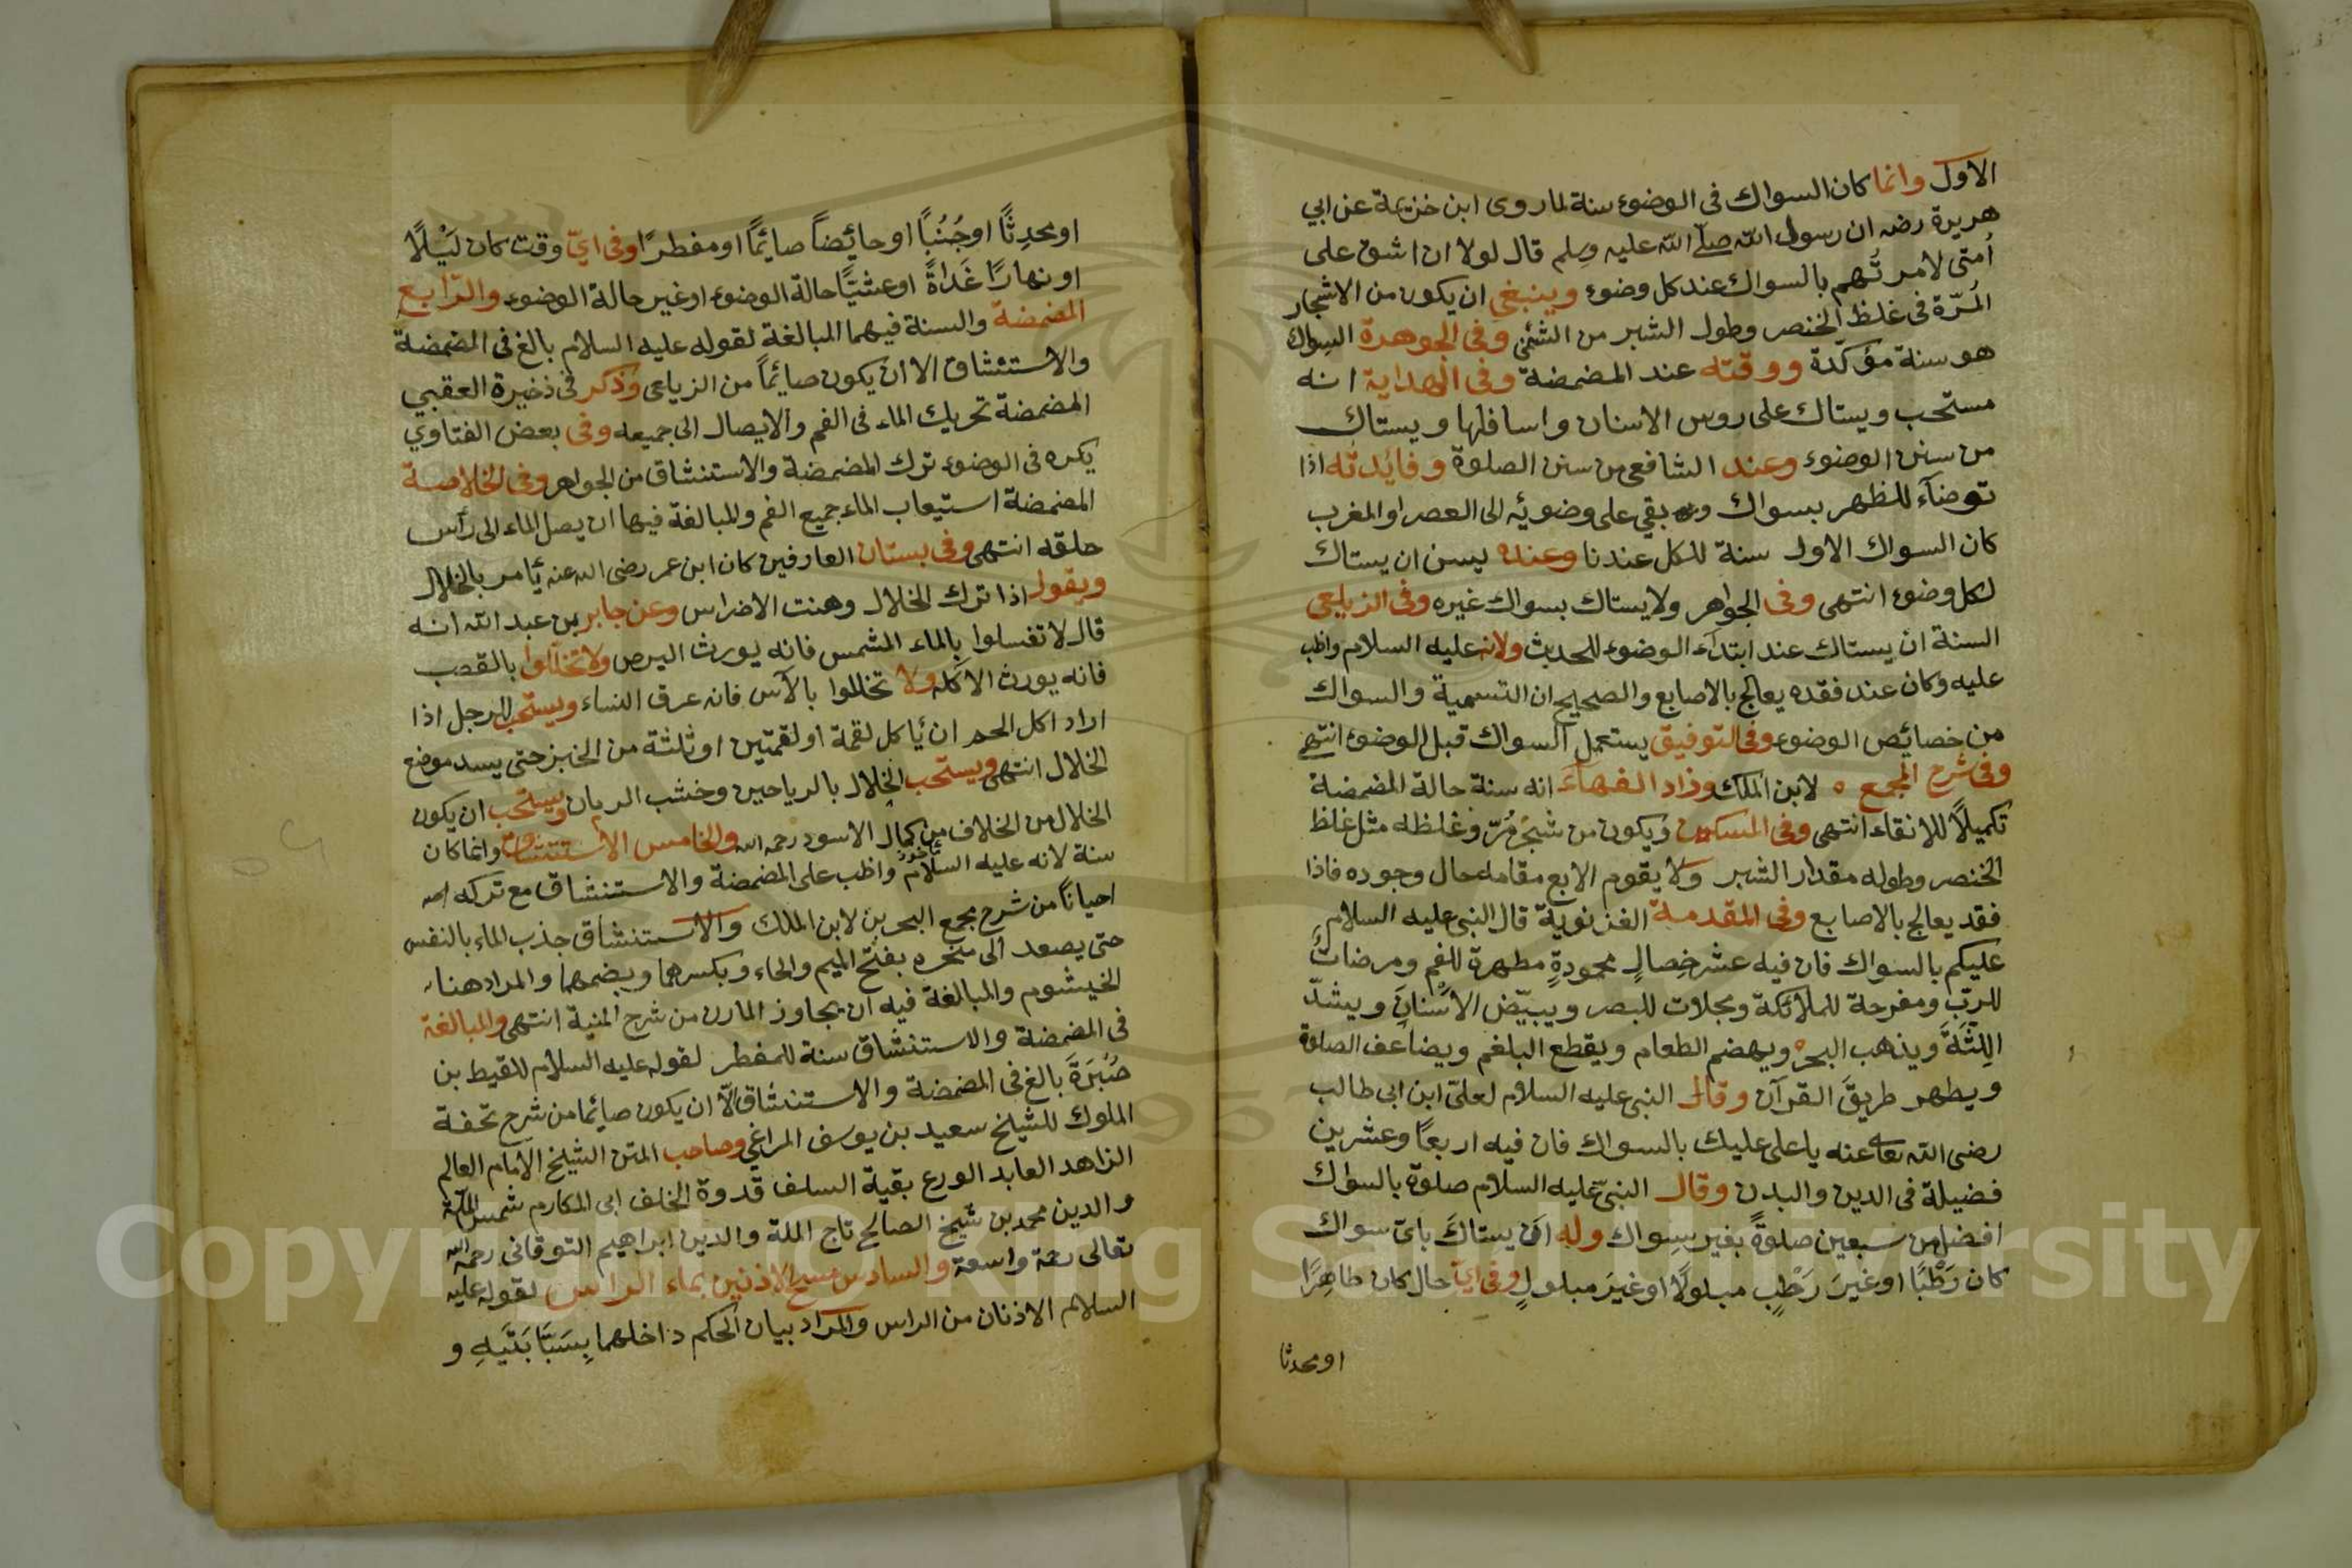 الاول وانما كان السواك فى الوضوء سنة لما روى ابن خزيمة عن ابي
هريرة رضه ان رسول الله صلى الله عليه وسلم قال لولا ان اشق على
أمتى لامرتهم بالسواك عند كل وضوء وينبغى ان يكون من الاشجار
المرّة فى غلظ الخنصر وطول الشبر من الشئى وفى الجوهرة السواك
هو سنة مؤكدة ووقته عند المضمضة وفى الهداية انه
مستحب ويستاك على روس الاسنان واسافلها ويستاك
من سنن الوضوء وعند الشافعى من سنن الصلوة وفايدته اذا
توضآء للظهر بسواك وبقي على وضوئه الى العصر او المغرب
كان السواك الاول سنة للكل عندنا وعنده يسن ان يستاك
لكل وضوء انتهى وفى الجواهر ولا يستاك بسواك غيره وفى الزيلعى
السنة ان يستاك عند ابتدآء الوضوء للحديث ولانه عليه السلام واظب
عليه وكان عند فقده يعالج بالاصابع والصحيح ان التسمية والسواك
من خصائص الوضوء وفى التوفيق يستعمل السواك قبل الوضوء انتهى
وفى شرح المجمع لابن الملك وزاد الفهآء انه سنة حالة المضمضة
تكميلاً للانقاء انتهى وفى المسكين ويكون من شجر مُرّ وغلظه مثل غلظ
الخنصر وطوله مقدار الشبر ولا يقوم الابع مقامه حال وجوده فاذا
فقد يعالج بالاصابع وفى المقدمة الغزنوية قال النبى عليه السلام
عليكم بالسواك فان فيه عشر خِصالٍ محمودةٍ مطهرة للفم ومرضات
للربّ ومفرحة للملائكة ومجلات للبصر ويبيّض الاسنانَ ويشدّ
اللِثَةَ ويذهب البخر ويهضم الطعام ويقطع البلغم ويضاعف الصلوة
ويطهر طريقَ القرآن وقال النبى عليه السلام لعلىّ ابن ابى طالب
رضى الله تعا عنه يا على عليك بالسواك فان فيه اربعًا وعشرين
فضيلة فى الدين والبدن وقال النبىّ عليه السلام صلوة بالسواك
افضل من سبعين صلوةً بغير سِواك وله اَن يستاكَ باىّ سواك
كان رَطْبًا اوغيرَ رَطْبٍ مبلولًا اوغيرَ مبلولٍ وفى اىّ حال كان طاهِرًا
او محدثا
او محدِثًا او جُنُبًا او حائضاً صائمًا او مفطرًا وفى ايّ وقت كان لَيْلًا
او نهارًا غَدَاةً او عشيًّا حالة الوضوء او غير حالة الوضوء والرّابع
المضمضة والسنة فيهما المبالغة لقوله عليه السلام بالغ فى المضمضة
والاستنشاق الا ان يكون صائماً من الزيلعى وذكر فى ذخيرة العقبي
المضمضة تحريك الماء فى الفم والايصال الى جميعه وفى بعض الفتاوي
يكره فى الوضوء ترك المضمضة والاستنشاق من الجواهر وفى الخلاصة
المضمضة استيعاب الماء جميع الفم والمبالغة فيها ان يصل الماء الى رأس
حلقه انتهى وفى بستان العارفين كان ابن عمر رضى الله عنه ئامر بالخلال
ويقول اذا ترك الخلال وهنت الاضراس وعن جابر بن عبد الله انه
قال لا تغسلوا بالماء المشمس فانه يورث البرص ولا تخللوا بالقصب
فانه يورث الاكله ولا تخللوا بالآس فان عرق النساء ويستحب للرجل اذا
اراد اكل الحم ان ئاكل لقمة او لقمتين او ثلثة من الخبز حتى يسد موضع
الخلال انتهى ويستحب الخلال بالرياحين وخشب الرمان ويستحب ان يكون
الخلال من الخلاف من كمال الاسود رحمه الله والخامس الاستنشاق وانما كان
سنة لانه عليه السلام واظب على المضمضة والاستنشاق مع تركه
احياناً من شرح مجمع البحرين لابن الملك والاستنشاق جذب الماء بالنفس
حتى يصعد الى منخره بفتح الميم والخاء وبكسرهما وبضمهما والمراد هنا
الخيشوم والمبالغة فيه ان يجاوز المارن من شرح المنية انتهى والمبالغة
فى المضمضة والاستنشاق سنة للمفطر لقوله عليه السلام للقيط بن
صُبَرَةَ بالغ فى المضمضة والاستنشاق الّا ان يكون صائما من شرح تحفة
الملوك للشيلخ سعيد بن يوسف المراغي وصاحب المتن الشيلخ الامام العالم
الزاهد العابد الورع بقية السلف قدوة الخلف ابى المكارم شمس الملة
والدين محمد بن شيخ الصالح تاج الملة والدين ابراهيم التوقانى رحمه الله
تعالى رحمة واسعة والسادس مسح الاذنين بماء الراس لقوله عليه
السلام الاذنان من الراس والمراد بيان الحكم داخلهما بِسَبَّابَتَيهِ و
Copyright © King Saud University
1957